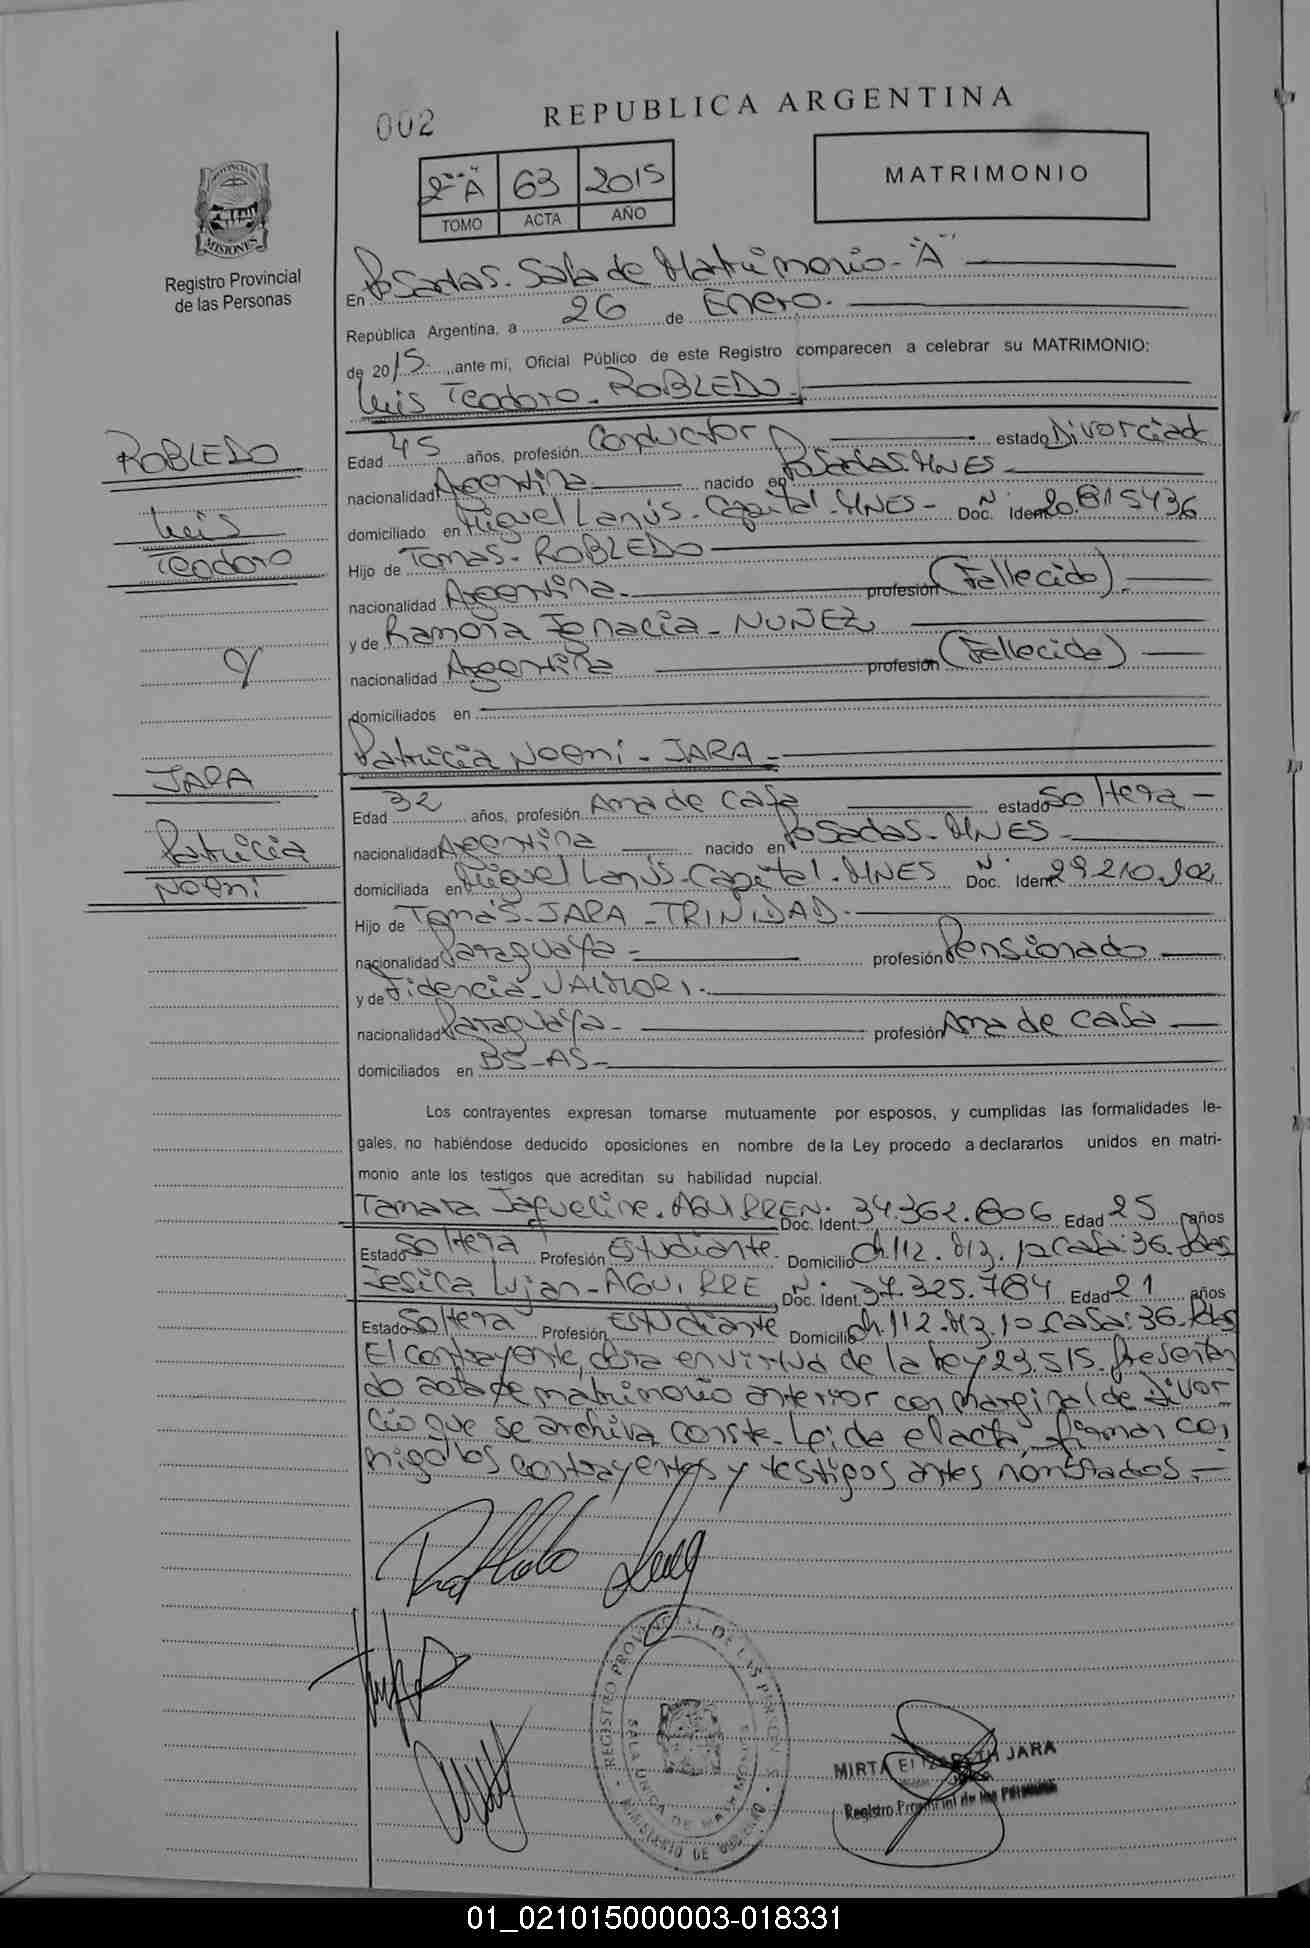 002
REPUBLICA ARGENTINA
2º "A" 63 2015
TOMO ACTA AÑO
MATRIMONIO
PROVINCIA DE
MISIONES
Registro Provincial
de las Personas
En Posadas. Sala de Matrimonio - "A"
República Argentina, a 26 de Enero.
de 2015 ante mi, Oficial Público de este Registro comparecen a celebrar su MATRIMONIO:
Luis Teodoro - ROBLEDO
ROBLEDO
Luis
Teodoro
y
JARA
Patricia
Noemi
Edad 45 años, profesión Conductor estado Divorciado
nacionalidad Argentina nacido en Posadas. MNES
domiciliado en Miguel Lanús - Capital - MNES - Doc. Ident. Nº 20.815436
Hijo de Tomas - ROBLEDO
nacionalidad Argentina. profesión (Fallecido).
y de Ramona Ignacia - NUÑEZ
nacionalidad Argentina profesión (Fallecida)
domiciliados en
Patricia Noemi - JARA
Edad 32 años, profesión Ama de casa estado Soltera -
nacionalidad Argentina nacido en Posadas - MNES
domiciliada en Miguel Lanús - Capital - MNES Doc. Ident. Nº 29.210.902
Hijo de Tomás - JARA - TRINIDAD
nacionalidad Paraguaya - profesión Pensionado
y de Fidencia -
nacionalidad Paraguaya - profesión Ama de casa
domiciliados en BS - AS -
Los contrayentes expresan tomarse mutuamente por esposos, y cumplidas las formalidades le-
gales, no habiéndose deducido oposiciones en nombre de la Ley procedo a declararlos unidos en matri-
monio ante los testigos que acreditan su habilidad nupcial.
Tamara Jaqueline. AGUIRRE Nº Doc. Ident. 34.362.806 Edad 25 años
Estado Soltera Profesión Estudiante. Domicilio Ch. 112. Mz. 10 casa: 36. Pdas
Jesica Lujan - AGUIRRE Nº Doc. Ident. 37.325.784 Edad 21 años
Estado Soltera Profesión Estudiante Domicilio Ch. 112. Mz. 10 casa: 36. Pdas
El contrayente, obra en virtud de la Ley 23.515. Presentan
do acta de matrimonio anterior con marginal de Divor
cio que se archiva conste. Leida el acta, firman con
migo los contrayentes y testigos antes nombrados -
REGISTRO PROVINCIAL DE LAS PERSONAS
SALA UNICA DE MATRIMONIO
MINISTERIO DE GOBIERNO
MIRTA ELIZABETH JARA
Registro Provincial de las Personas
01_021015000003-018331